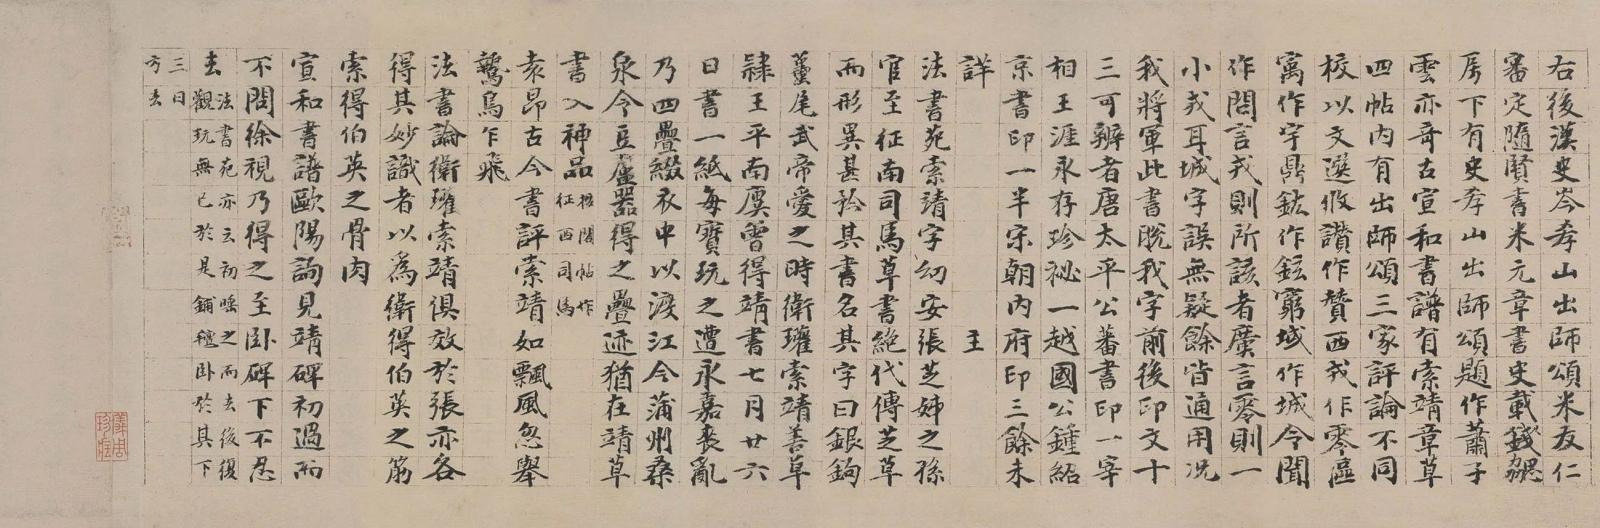 右後漢史岑孝山出師頌米友仁
審定隨賢書米元章書史載錢勰
房下有史孝山出師頌題作蕭子
雲亦奇古宣和書譜有索靖章草
四帖內有出師頌三家評論不同
校以文選攸讃作贊西戎作零區
寓作宇鼎鉉作鉉窮域作城今聞
作問言我則所該者廣言零則一
小戎耳城字誤無疑餘皆通用况
我將軍此書脫我字前後印文十
三可辨者唐太平公蕃書印一宰
相王涯永存珍祕一越國公鍾紹
京書印一半宋朝內府印三餘未
詳 王
法書苑索靖字幼安張芝姊之孫
官至征南司馬草書絶代傳芝草
而形異甚矜其書名其字曰銀鉤
蠆尾武帝愛之時衛瓘索靖善草
隸王平南廙曾得靖書七月廿六
日書一紙每寳玩之遭永嘉喪亂
乃四疊綴衣中以渡江今蒲州桑
泉令豆盧器得之疊迹猶在靖草
書入神品 閣帖作征西司馬
袁昂古今書評索靖如飄風忽舉
鷙鳥乍飛
法書論衛瓘索靖俱效於張亦各
得其妙識者以為衛得伯英之筋
索得伯英之骨肉
宣和書譜歐陽詢見靖碑初過而
不問徐視乃得之至卧碑下不忍
去 法書苑亦云初唾之而去後復
觀玩無已於是鋪氊卧於其下
三日
方去